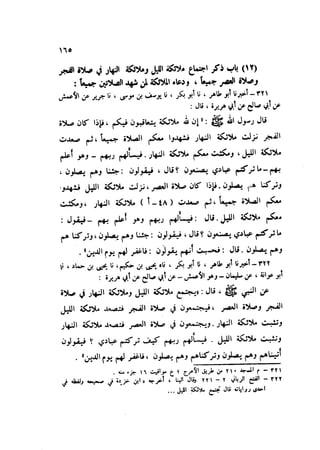 ١٦٥
(١٢) باب ذكر اجتماع ملائكة الليل وملائكة النهار في صلاة الفجر
وصلاة العصر جميعاً، ودعاء الملائكة لمن شهد الصلاتين جميعاً:
٣٢١ – أخبرنا أبو طاهر، نا أبو بكر، نا يوسف بن موسى، نا جرير عن الأعمش
عن أبي صالح عن أبي هريرة، قال:
قال رسول الله ﷺ: «إن لله ملائكة يتعاقبون فيكم، فإذا كان صلاة
الفجر نزلت ملائكة النهار فشهدوا معكم الصلاة جميعاً، ثم صعدت
ملائكة الليل، ومكثت معكم ملائكة النهار. فيسألهم ربهم – وهو أعلم
بهم – ما تركتم عبادي يصنعون؟ قال: فيقولون: جئنا وهم يصلون،
وتركناهم يصلون. فإذا كان صلاة العصر نزلت ملائكة الليل فشهدوا
معكم الصلاة جميعاً، ثم صعدت (٤٨ – أ) ملائكة النهار، ومكثت
معكم ملائكة الليل. قال: فيسألهم ربهم وهو أعلم بهم – فيقول:
ما تركتم عبادي يصنعون؟ قال: فيقولون: جئنا وهم يصلون، وتركناهم
وهم يصلون. قال: فحسبت أنهم يقولون: فاغفر لهم يوم الدين».
٣٢٢ – أخبرنا أبو طاهر، نا أبو بكر، ناه يحيى بن حكيم، نا يحيى بن حماد، نا
أبو عوانة، عن سليمان – وهو الأعمش – عن أبي صالح عن أبي هريرة:
عن النبي ﷺ، قال: «يجتمع ملائكة الليل وملائكة النهار في صلاة
الفجر وصلاة العصر، فيجتمعون في صلاة الفجر فتصعد ملائكة الليل
وتثبت ملائكة النهار. ويجتمعون في صلاة العصر فتصعد ملائكة النهار
وتثبت ملائكة الليل. فيسألهم ربهم كيف تركتم عبادي؟ فيقولون
أتيناهم وهم يصلون وتركناهم وهم يصلون، فاغفر لهم يوم الدين».
٣٢١ – م المساجد ٢١٠ من طريق الأعرج؛ خ مواقيت ١٦ جزء منه.
٣٢٢ – الفتح الرباني ٢ – ٢٢١ وقال البنا، أخرجه ابن خزيمة في صحيحه ولفظه في
احدى رواياته قال تجتمع ملائكة الليل...